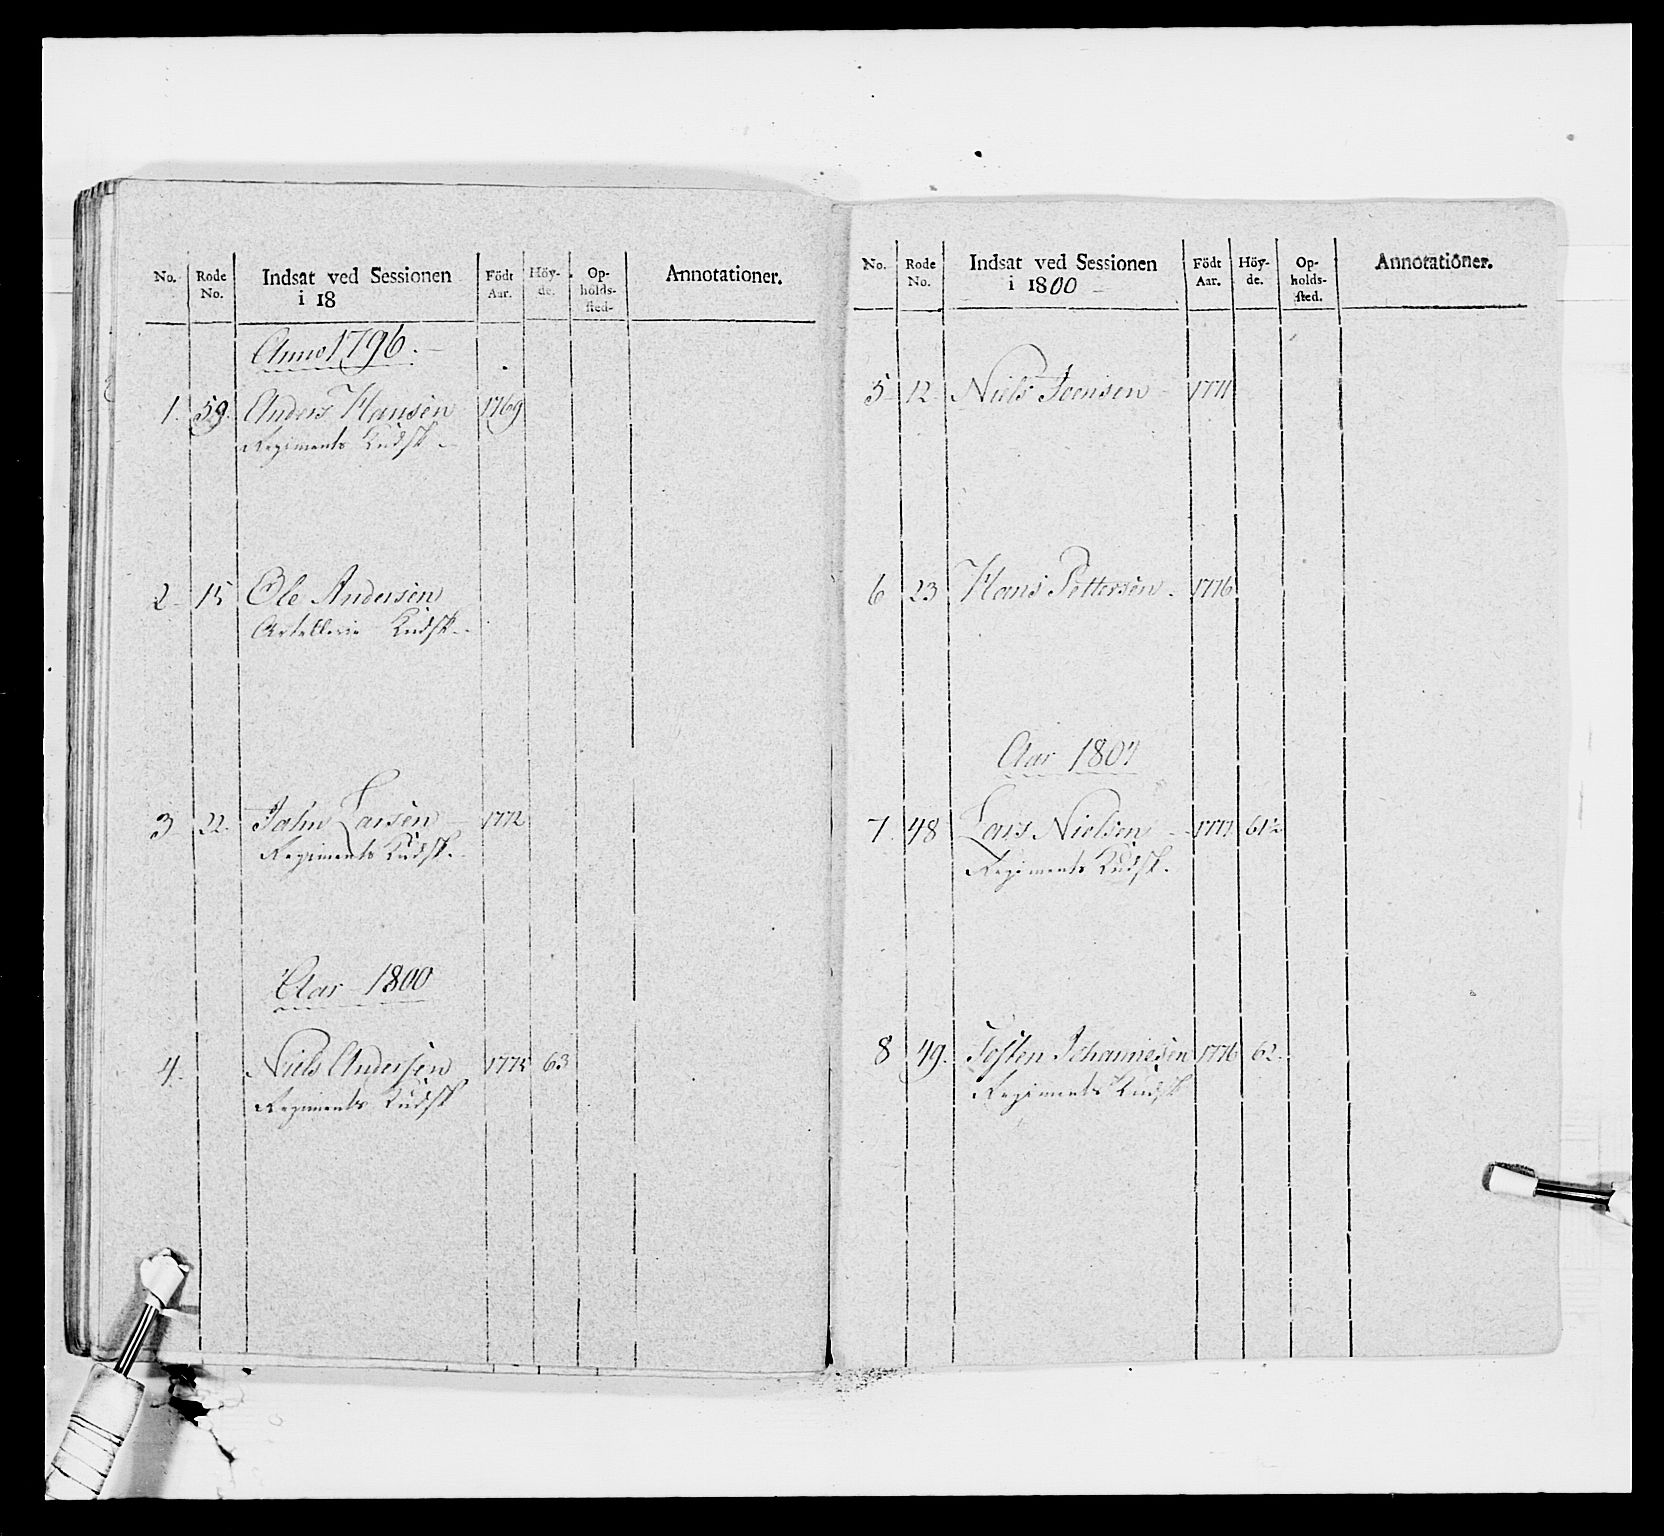 No. Rode No. Indsat ved Sessionen i 18 Födt Aar. Höy-de. Op-holds-sted. Annotationer.
Anno 1796.
1. 59. Anders Hansen 1769
Regiments Kudsk
2. 15 Ole Andersen
Artellerie Kudsk
3 22. Jahn Larsen 1772
Regiments Kudsk.
Aar 1800
4. Niels Andersen 1775 63
Regiments Kudsk
No. Rode No. Indsat ved Sessionen i 1800 Födt Aar. Höy-de. Op-holds-sted. Annotationer.
5 12 Niels Joensen 1771
6 23 Hans Pettersen 1776
Aar 1801
7. 48 Lars Nielsen 1777 61½
Regiments Kudsk.
8 49. Tosten Johannesen 1776 62.
Regiments Kudsk